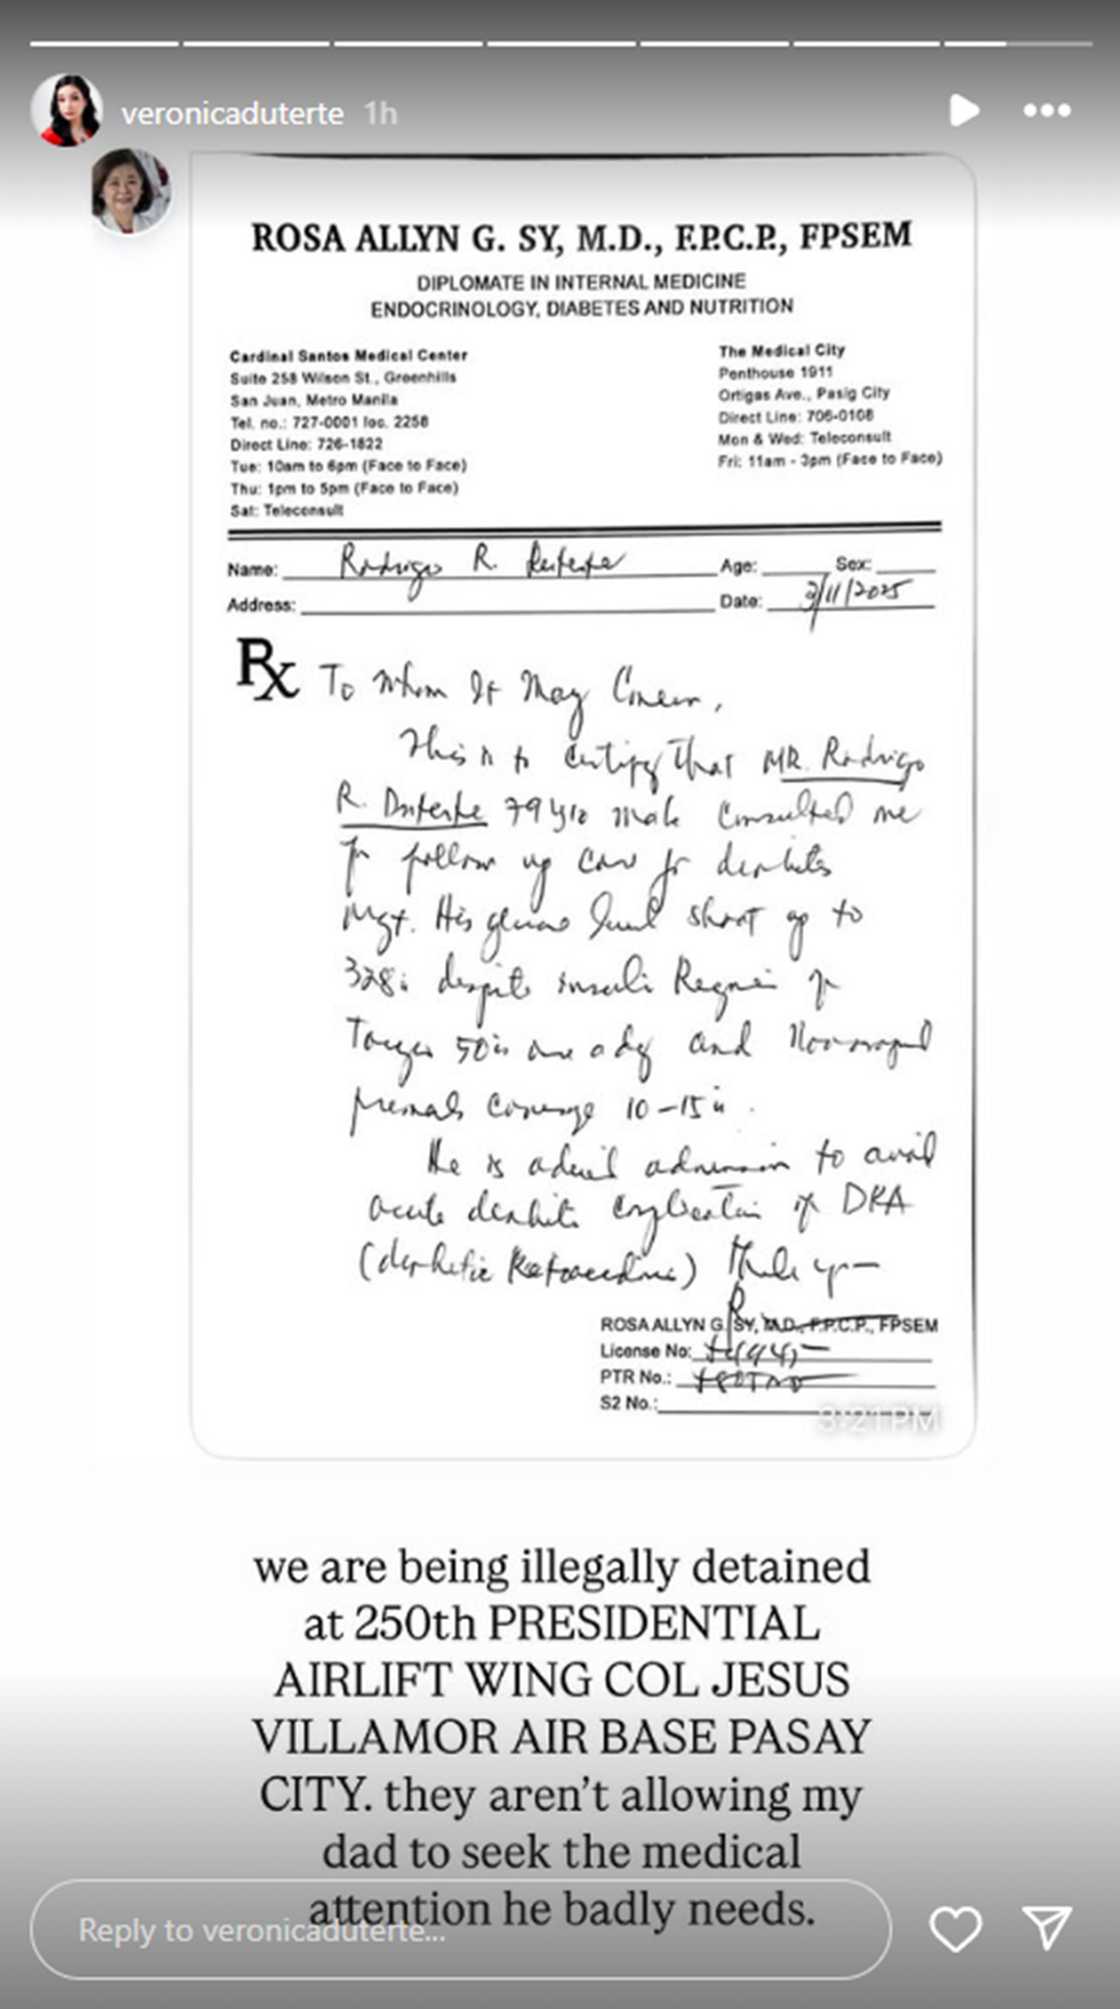 veronicaduterte 1h
ROSA ALLYN G. SY, M.D., F.P.C.P., FPSEM
DIPLOMATE IN INTERNAL MEDICINE
ENDOCRINOLOGY, DIABETES AND NUTRITION
Cardinal Santos Medical Center
Suite 258 Wilson St., Greenhills
San Juan, Metro Manila
Tel. no.: 727-0001 loc. 2258
Direct Line: 726-1822
Tue: 10am to 6pm (Face to Face)
Thu: 1pm to 5pm (Face to Face)
Sat: Teleconsult
The Medical City
Penthouse 1911
Ortigas Ave., Pasig City
Direct Line: 706-0108
Mon & Wed: Teleconsult
Fri: 11am - 3pm (Face to Face)
Name: Rodrigo R. Duterte Age: Sex:
Address: Date: 3/11/2025
Rx To Whom It May Concern,
This is to certify that MR. Rodrigo
R. Duterte 79 y/o male consulted me
for follow up care for diabetes
Mgt. His glucose level shoot up to
328 despite insulin Regimen of
50 once a day and
premeals coverage 10-15 u.
He is advised admission to avoid
acute diabetic complication of DKA
(diabetic Ketoacidosis) Thank you
ROSA ALLYN G. SY, M.D., F.P.C.P., FPSEM
License No:
PTR No.:
S2 No.:
3:21 PM
we are being illegally detained
at 250th PRESIDENTIAL
AIRLIFT WING COL JESUS
VILLAMOR AIR BASE PASAY
CITY. they aren't allowing my
dad to seek the medical
attention he badly needs.
Reply to veronicaduterte...